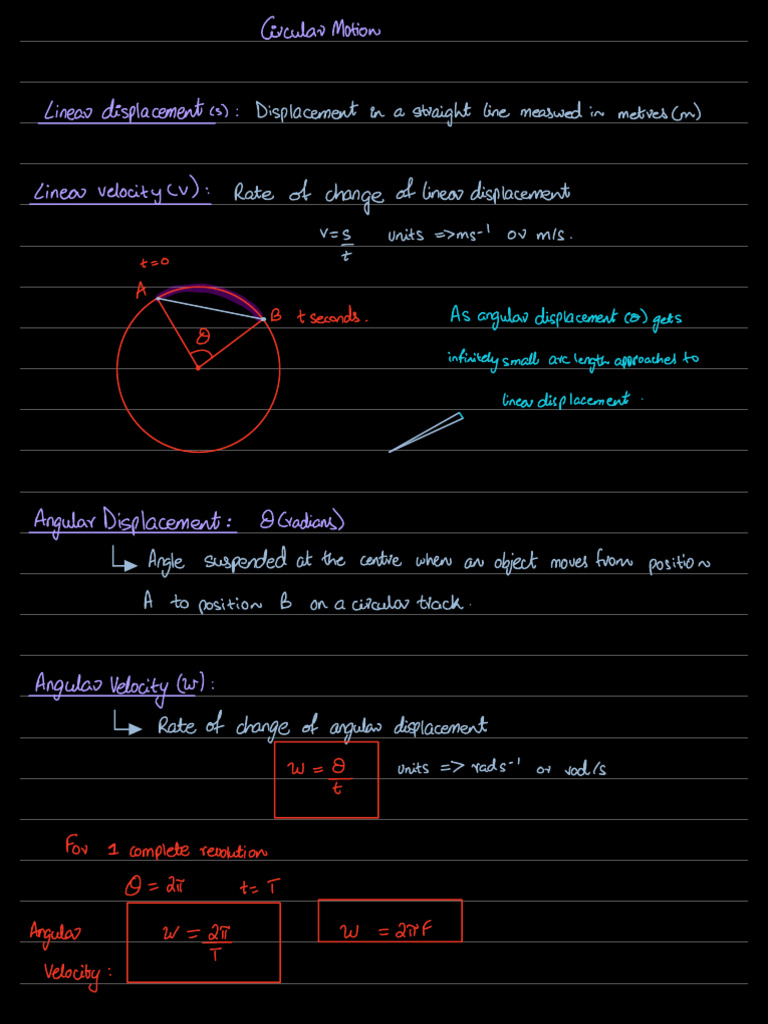 Circular Motion
Linear displacement (s) : Displacement in a straight line measured in metres (m)
Linear velocity (v) : Rate of change of linear displacement
v = s/t units => ms⁻¹ or m/s.
t=0
A
B t seconds.
θ
As angular displacement (θ) gets
infinitely small arc length approaches to
linear displacement.
Angular Displacement : θ (radians)
↳ Angle suspended at the centre when an object moves from position
A to position B on a circular track.
Angular Velocity (w) :
↳ Rate of change of angular displacement
w = θ/t units => rads⁻¹ or rad/s
For 1 complete revolution
θ = 2π t = T
Angular w = 2π/T w = 2πF
Velocity :